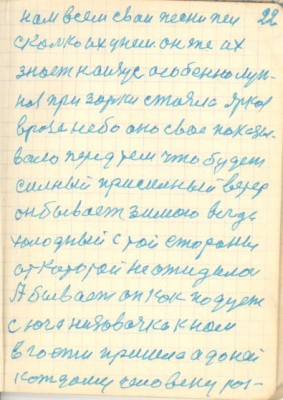 нам всем свои песни пел 22
сколко их у нем он же их
знает наизус особенно лун-
ноя при зорки стояла яркоя
вроде небо оно свое показы-
вало перед тем что будет
силный присилный ветер
он бывает зимою всегда
холодный с той стороны
от которой не ожидали
А бывает он как подует
с юга низовочка к нам
в гости пришла а домой
каждому человеку